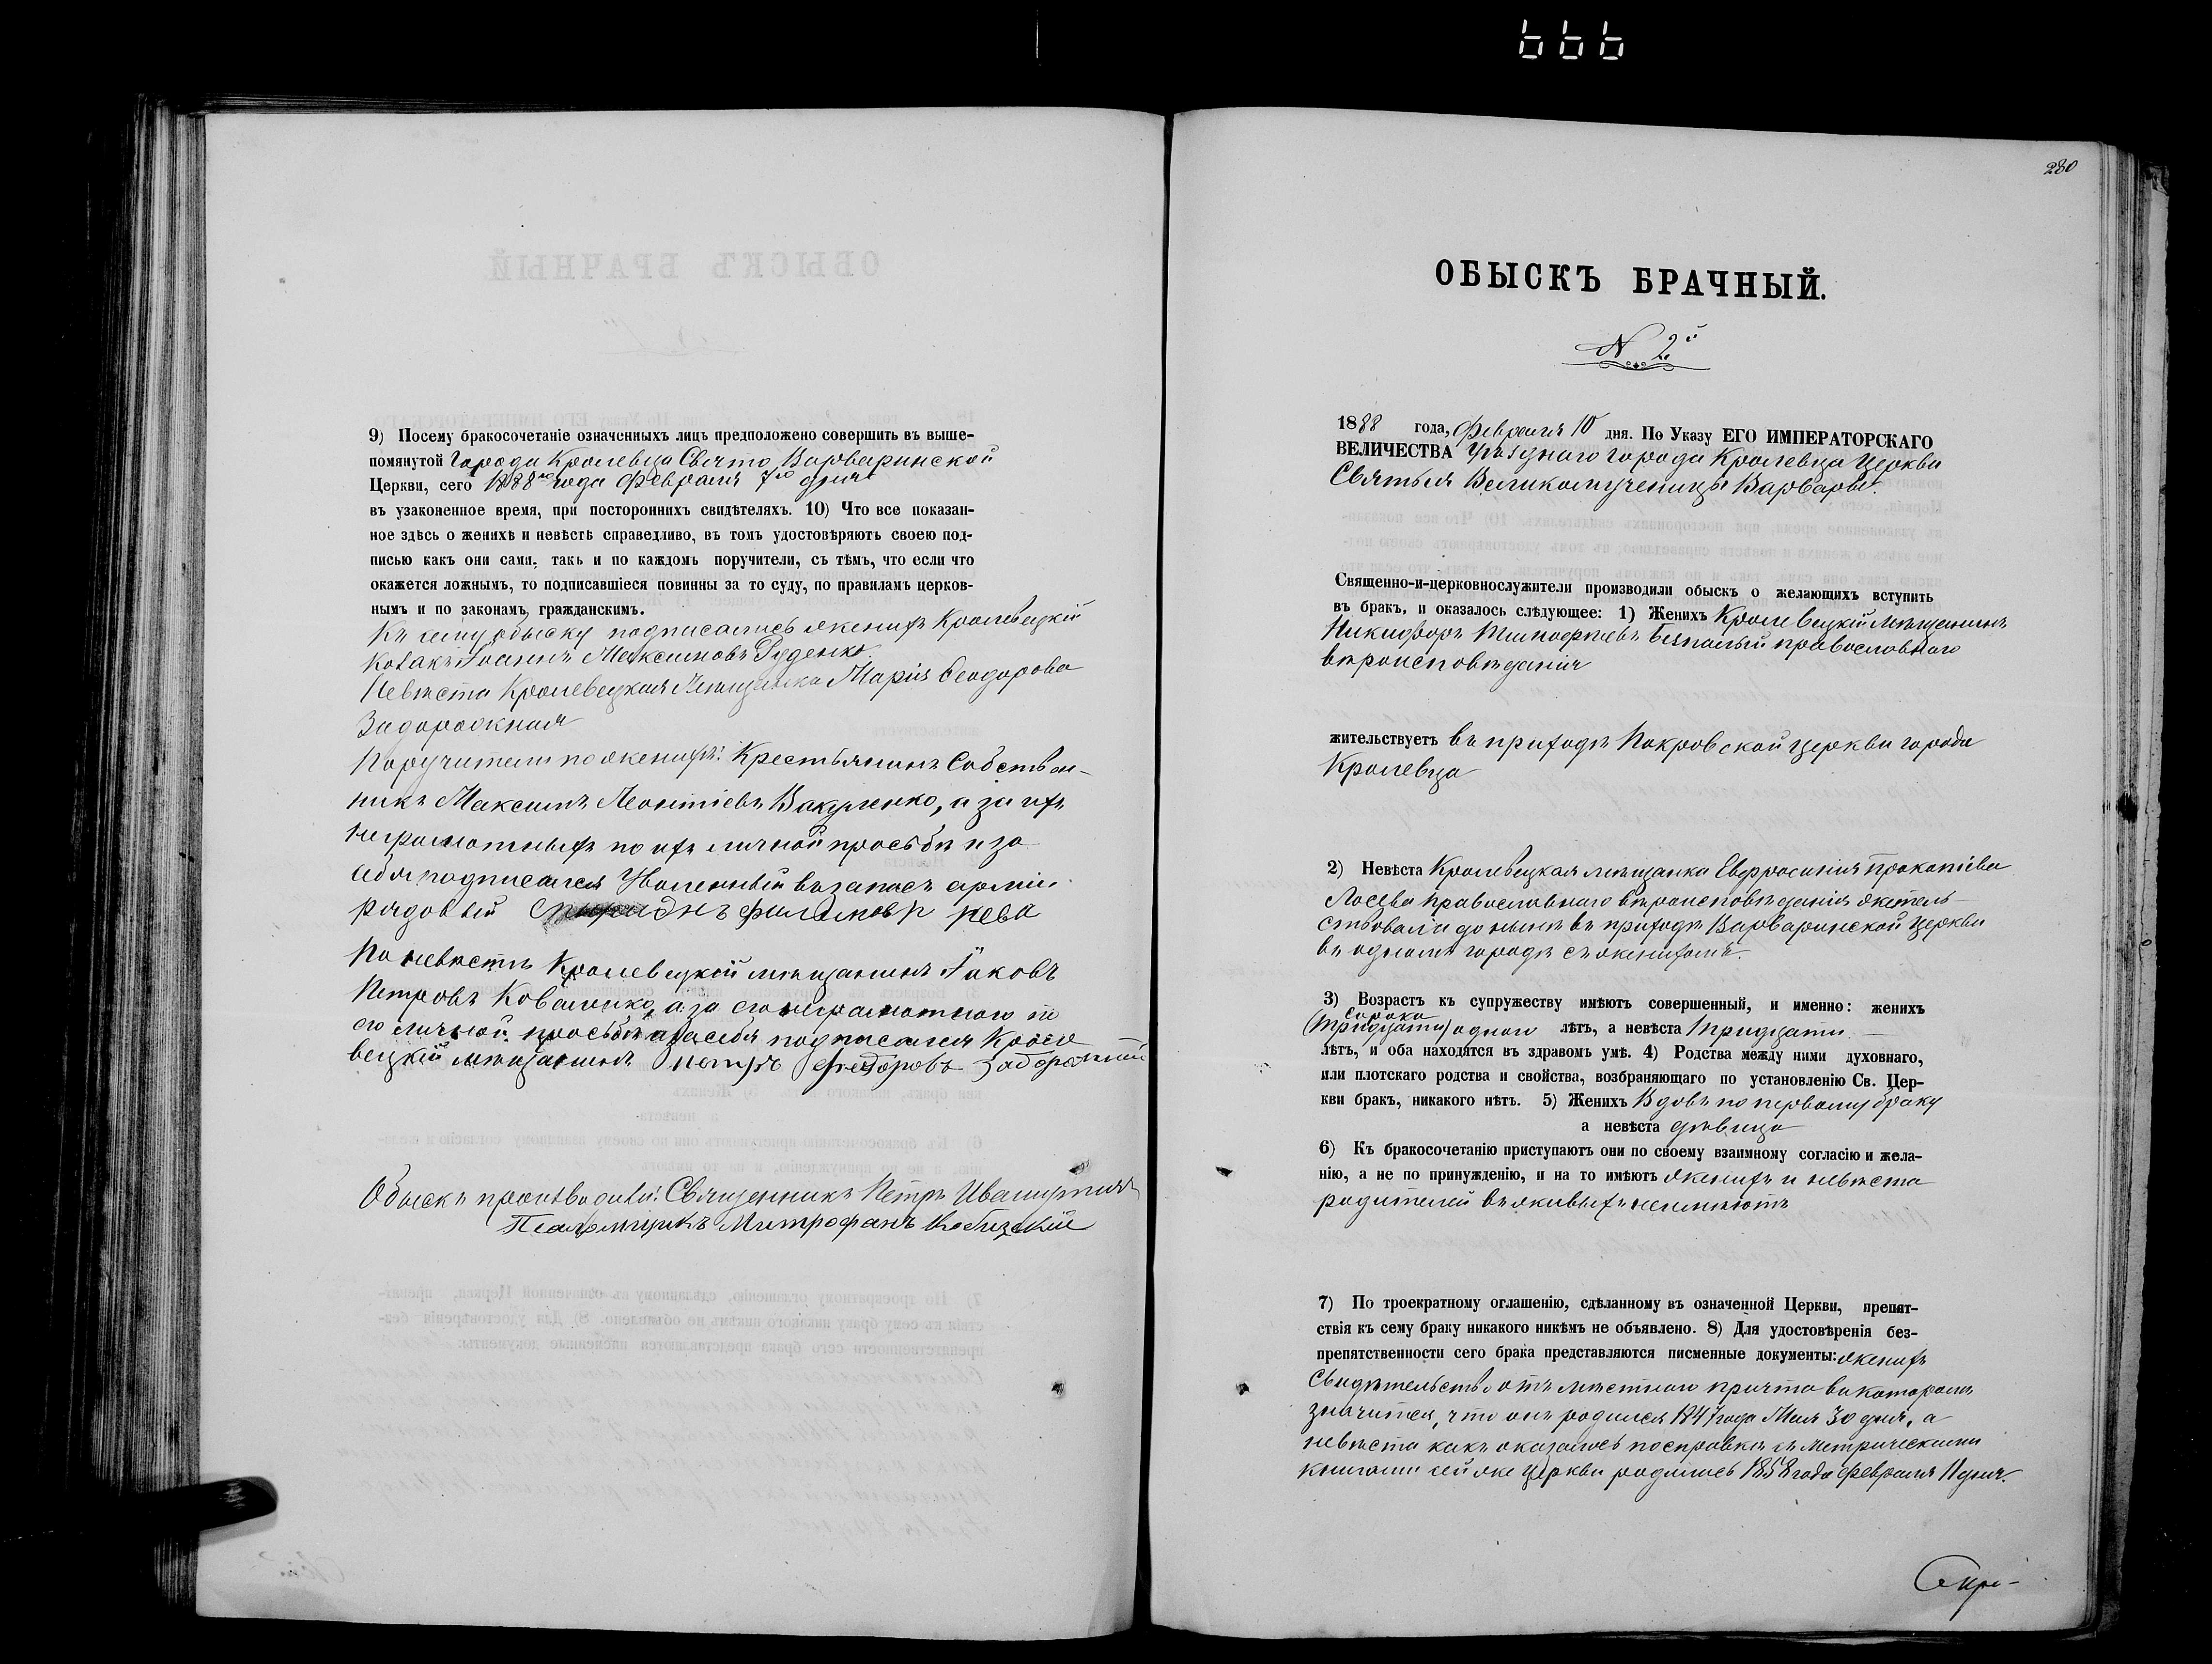 9) Посему бракосочетаніе означенныхъ лицъ предположено совершить въ выше-
помянутой Города Кролевца Свято Варваринской
Церкви, сего 1888го года Февраля 7го дня
въ узаконенное время, при постороннихъ свидѣтеляхъ. 10) Что все показан-
ное здѣсь о женихѣ и невѣстѣ справедливо, въ томъ удостовѣряютъ своею под-
писью какъ они сами, такъ и по каждомъ поручители, съ тѣмъ, что если что
окажется ложнымъ, то подписавшіеся повинны за то суду, по правиламъ церков-
нымъ и по законамъ гражданскимъ.
Къ сему обыску подписались женихъ Кролевецкій
Козакъ Іоаннъ Максимовъ Руденко
Невѣста Кролевецкая Мѣщанка Марія Ѳеодорова
Задорожная
Поручители по женихѣ: Крестьянинъ Собствен-
никъ Максимъ Леонтіевъ Вакуленко, а за ихъ
неграмотныхъ по ихъ личной просьбѣ и за
себя подписался Уволенный въ запасъ арміи
рядовый филимовъ рева
По невѣстѣ Кролевецкій мѣщанинъ Іаковъ
Петровъ Коваленко, а за его неграмотного по
его личной просьбѣ и за себя подписался Кроле
вецкій мѣщанинъ петръ федоровъ задорожній
Обыскъ производили: Священникъ Петръ
Псаломщикъ Митрофанъ
280
ОБЫСКЪ БРАЧНЫЙ.
N 2й
1888 года, Февраля 10 дня. По Указу ЕГО ИМПЕРАТОРСКАГО
ВЕЛИЧЕСТВА Уѣзднаго города Кролевца Церкви
Святыя Великомученицы Варвары.
Священно-и-церковнослужители производили обыскъ о желающихъ вступить
въ бракъ, и оказалось слѣдующее: 1) Женихъ Кролевецкій мѣщанинъ
Никифоръ Тимофѣевъ Безпалый православнаго
вѣроисповѣданія
жительствуетъ въ приходѣ Покровской церкви города
Кролевца
2) Невѣста Кролевецкая мѣщанка Евфросинія Прокопіева
Лосева православнаго вѣроисповѣданія жетель-
ствовала до нынѣ въ приходѣ Варваринской Церкви
въ одномъ городѣ съ женихомъ.
3) Возрастъ къ супружеству имѣютъ совершенный, и именно: женихъ
сорока
(тридцати) одного лѣтъ, а невѣста тридцати
лѣтъ, и оба находятся въ здравомъ умѣ. 4) Родства между ними духовнаго,
или плотскаго родства и свойства, возбраняющаго по установленію Св. Цер-
кви бракъ, никакого нѣтъ. 5) Женихъ Вдовъ по первому браку
а невѣста дѣвица
6) Къ бракосочетанію приступаютъ они по своему взаимному согласію и жела-
нію, а не по принужденію, и на то имѣютъ женихъ и невѣста
родителей въ живыхъ неимѣютъ
7) По троекратному оглашенію, сдѣланному въ означенной Церкви, препят-
ствія къ сему браку никакого никѣмъ не объявлено. 8) Для удостовѣренія без-
препятственности сего брака представляются писменные документы: женихъ
Свидѣтельство отъ мѣстнаго причта въ которомъ
значится, что онъ родился 1847 года Мая 30 дня, а
невѣста какъ оказалось по справкѣ съ Метрическими
книгами сей же Церкви родилась 1858 года Февраля 11 дня.